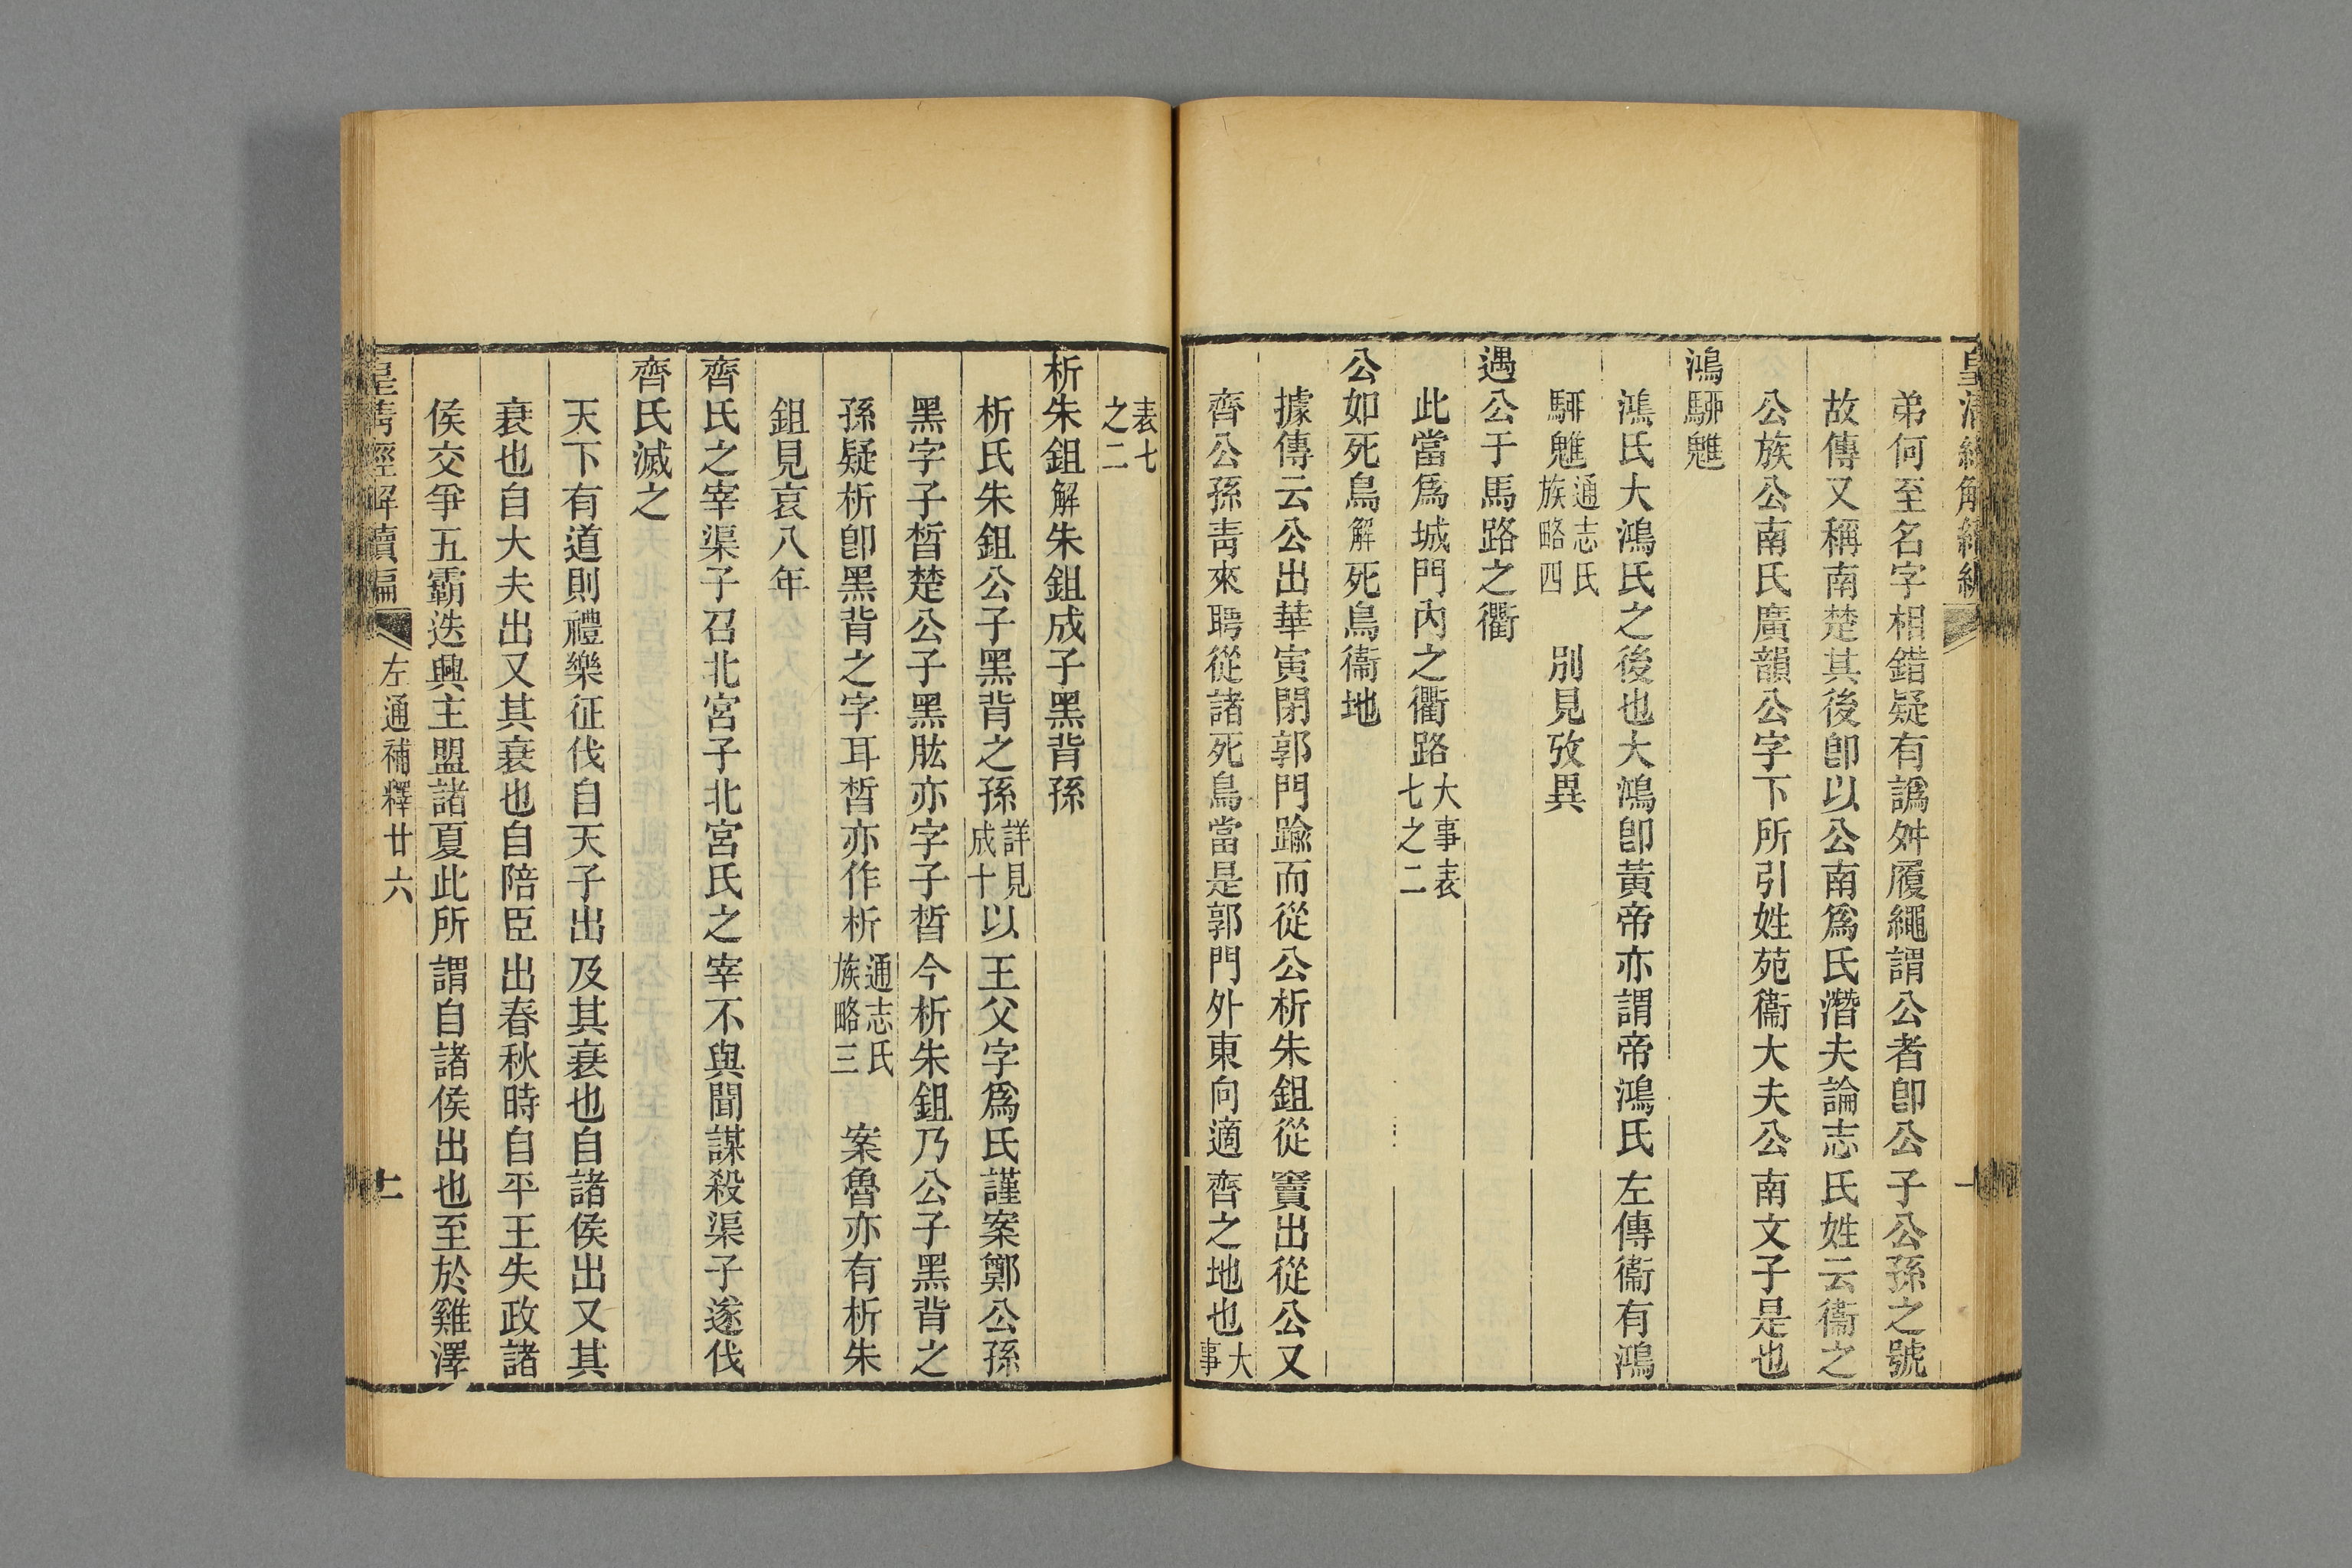 皇清經解續編
一
弟何至名字相錯疑有譌舛履繩謂公者卽公子公孫之號
故傳又稱南楚其後卽以公南爲氏潛夫論志氏姓云衞之
公族公南氏廣韻公字下所引姓苑衞大夫公南文子是也
鴻駵魋
鴻氏大鴻氏之後也大鴻卽黃帝亦謂帝鴻氏左傳衞有鴻
駵魋通志氏族略四 別見攷異
遇公于馬路之衢
此當爲城門內之衢路大事表七之二
公如死鳥解死鳥衞地
據傳云公出華寅閉郭門踰而從公析朱鉏從竇出從公又
齊公孫靑來聘從諸死鳥當是郭門外東向適齊之地也大事
表七之二
析朱鉏解朱鉏成子黑背孫
析氏朱鉏公子黑背之孫詳見成十以王父字爲氏謹案鄭公孫
黑字子皙楚公子黑肱亦字子皙今析朱鉏乃公子黑背之
孫疑析卽黑背之字耳皙亦作析通志氏族略三 案魯亦有析朱
鉏見哀八年
齊氏之宰渠子召北宮子北宮氏之宰不與聞謀殺渠子遂伐
齊氏滅之
天下有道則禮樂征伐自天子出及其衰也自諸侯出又其
衰也自大夫出又其衰也自陪臣出春秋時自平王失政諸
侯交爭五霸迭興主盟諸夏此所謂自諸侯出也至於雞澤
皇淸經解續編
左通補釋廿六